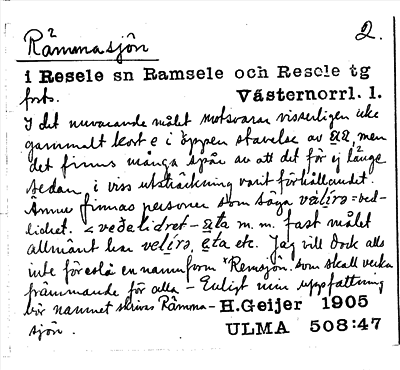 Råmmasjön 2.
i Resele sn Ramsele och Resele tg
forts. Västernorrl. l.
I det nuvarande målet motsvarar visserligen icke
gammalt kort e i öppen stavelse av a͟a, men
det finns många spår av att det för ej länge
sedan i viss utsträckning varit förhållandet.
Ännu finnas personer som säga välirə = ved-
lidret. < veðelidret - äta m. m. fast målet
allmänt har velirə, eta etc. Jag vill dock alls
inte föreslå en namnform *Remsjön. som skall verka
främmande för alla - Enligt min uppfattning
bör namnet skrivas Råmma- H.Geijer 1905
sjön. ULMA 508:47